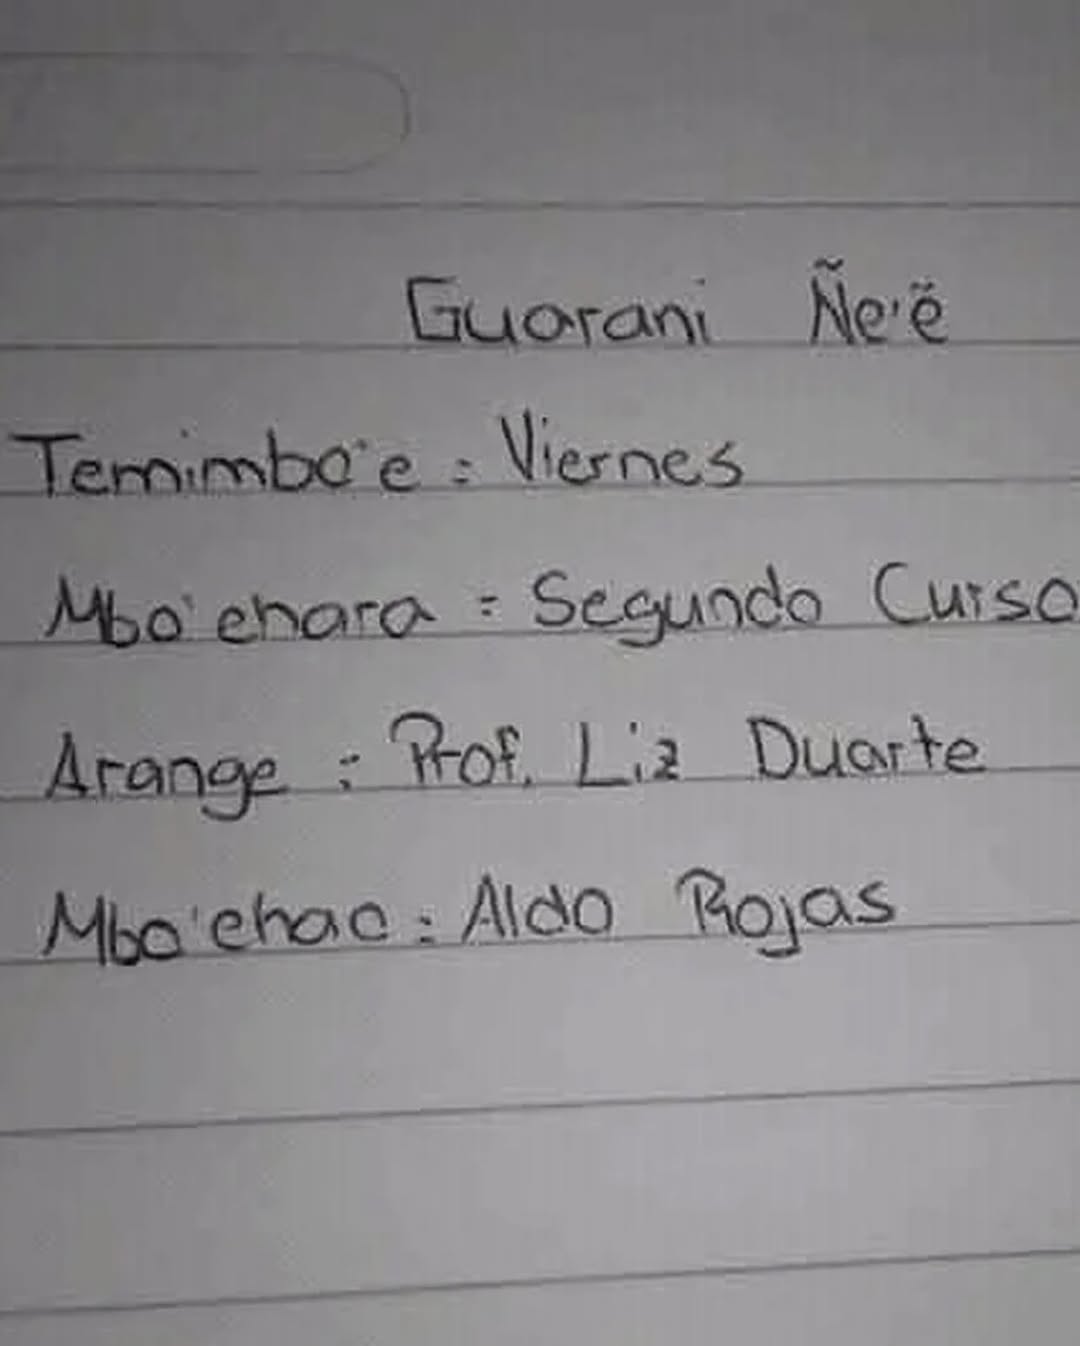 Guarani Ñe'ẽ
Temimbo'e : Viernes
Mbo'ehara : Segundo Curso
Arange : Prof. Liz Duarte
Mbo'ehao : Aldo Rojas